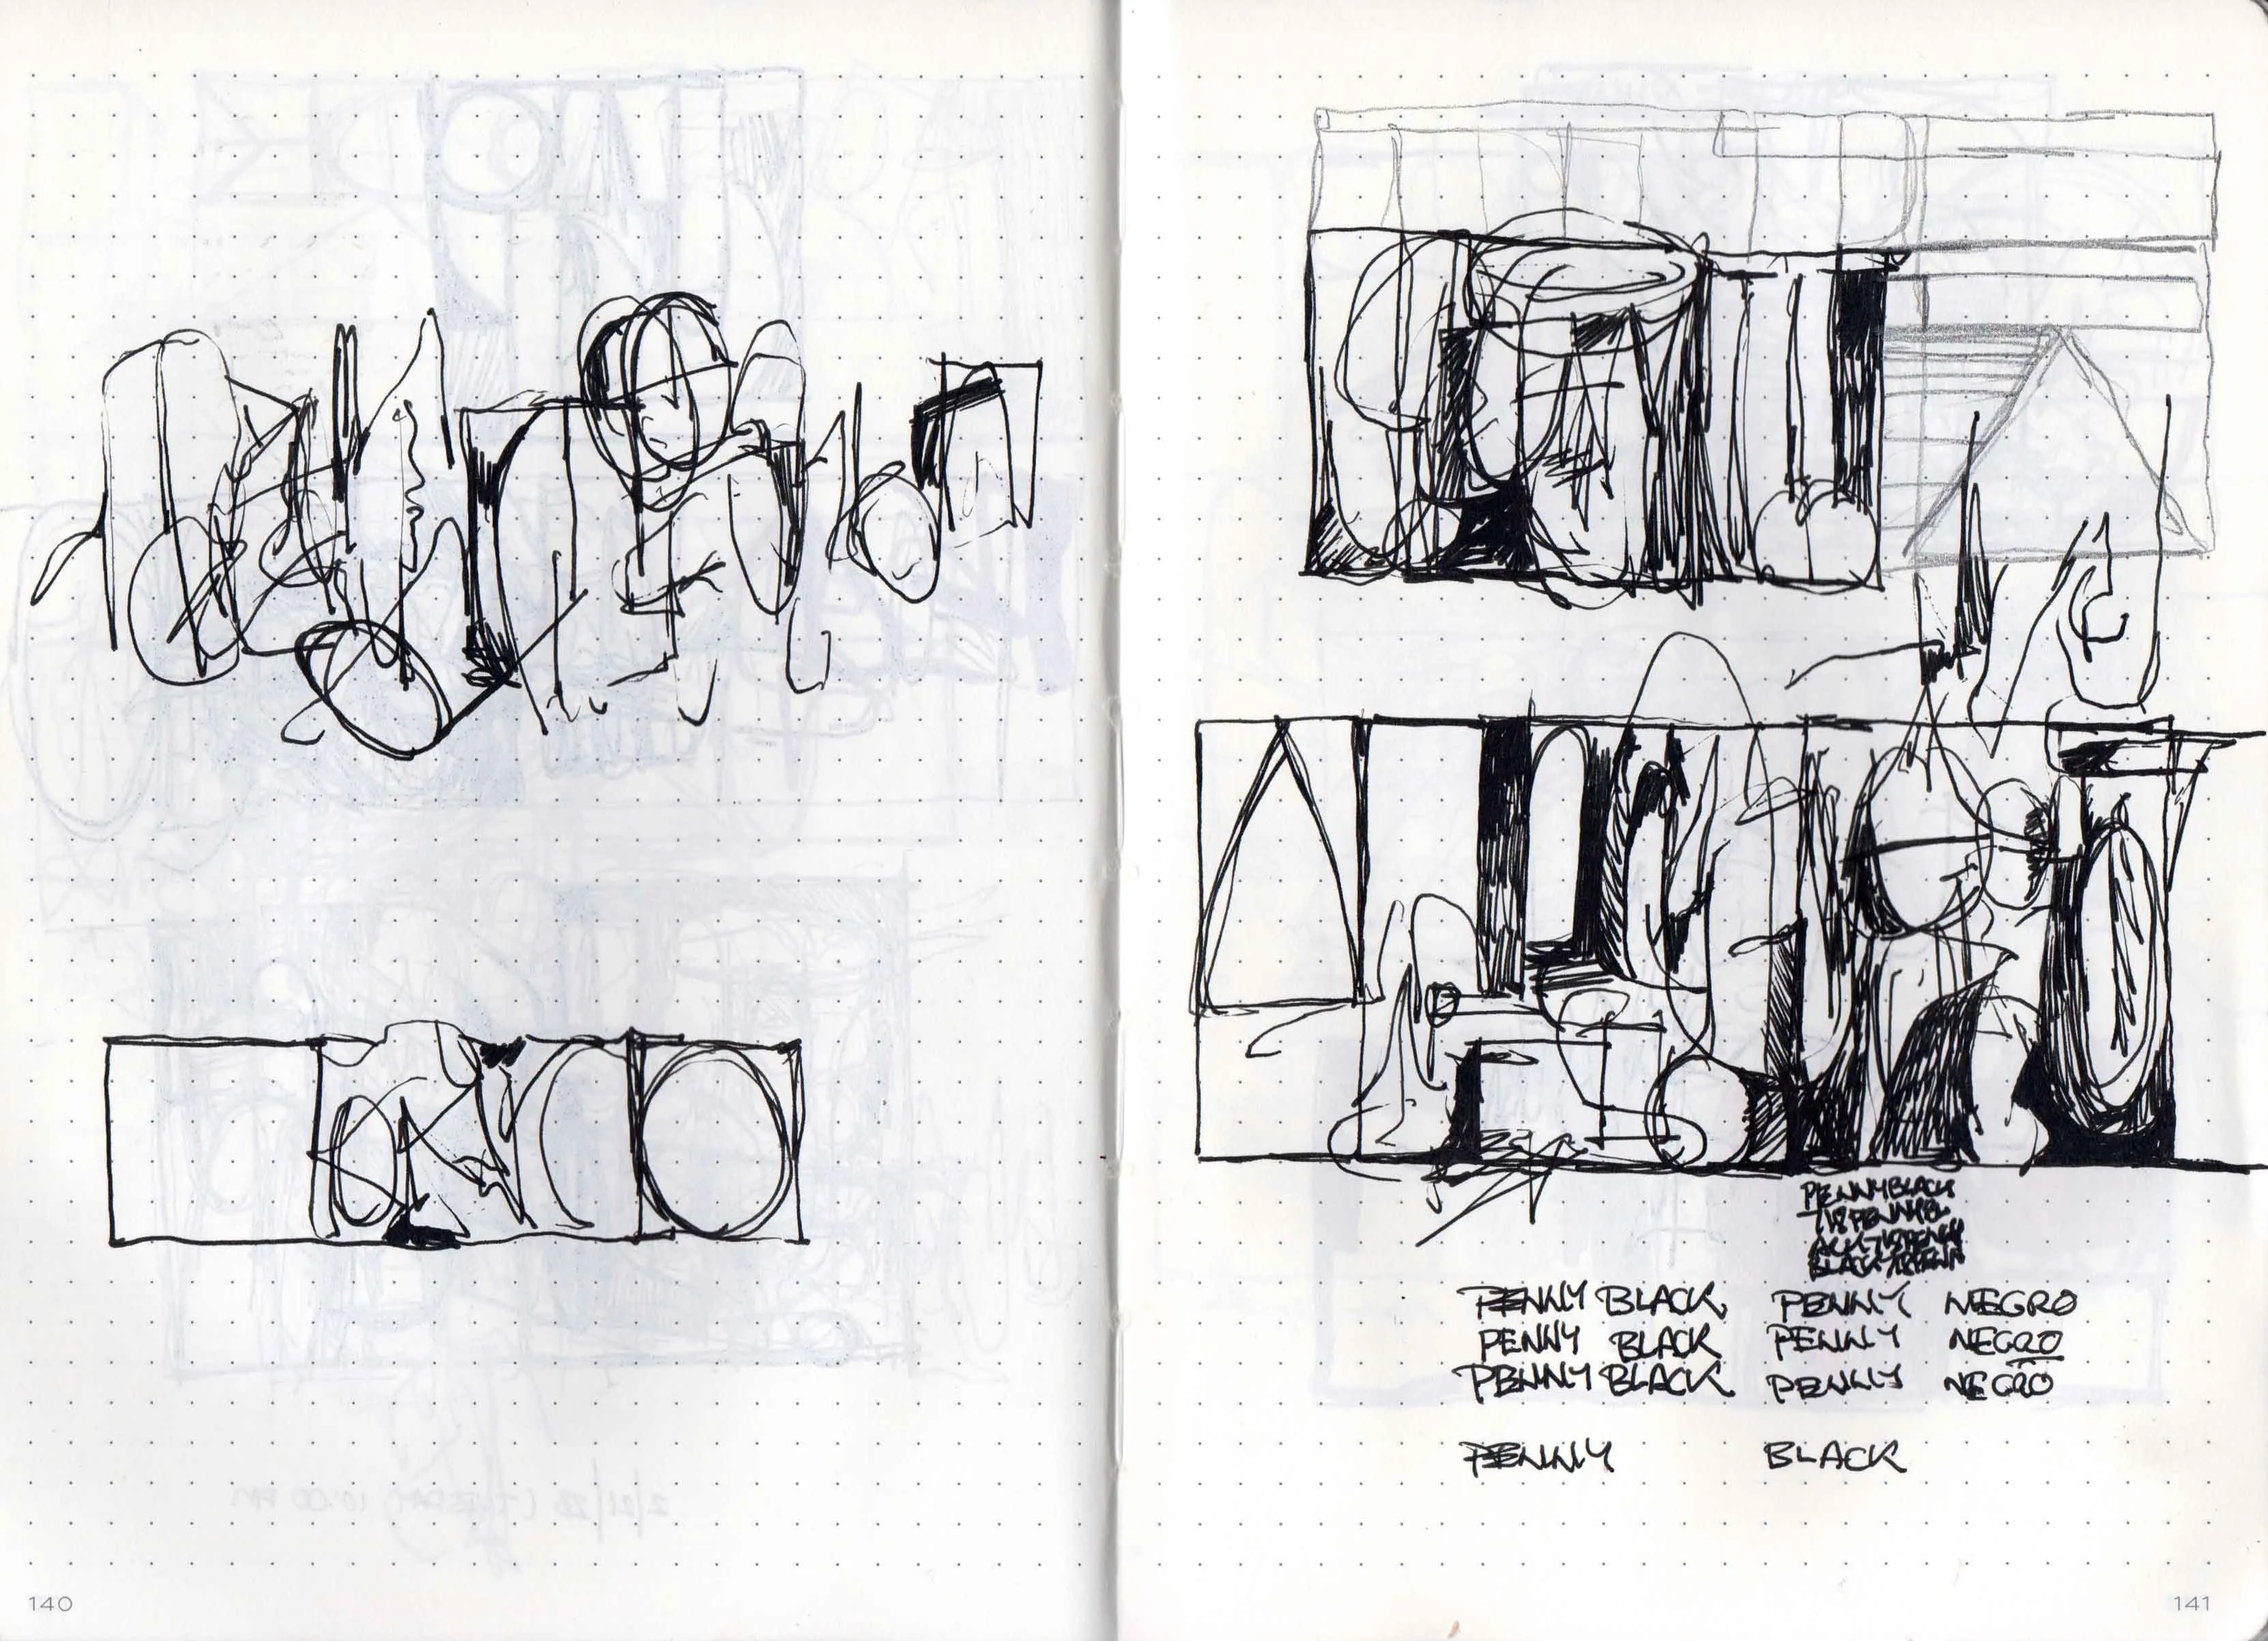 PENNYBLACK
PENNY BLACK PENNY NEGRO
PENNY BLACK PENNY NEGRO
PENNY BLACK PENNY NEGRO
PENNY BLACK
140
141